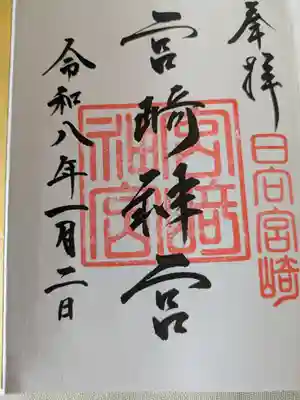 奉拝
日向宮崎
宮﨑神宮
宮﨑神宮
令和八年一月二日